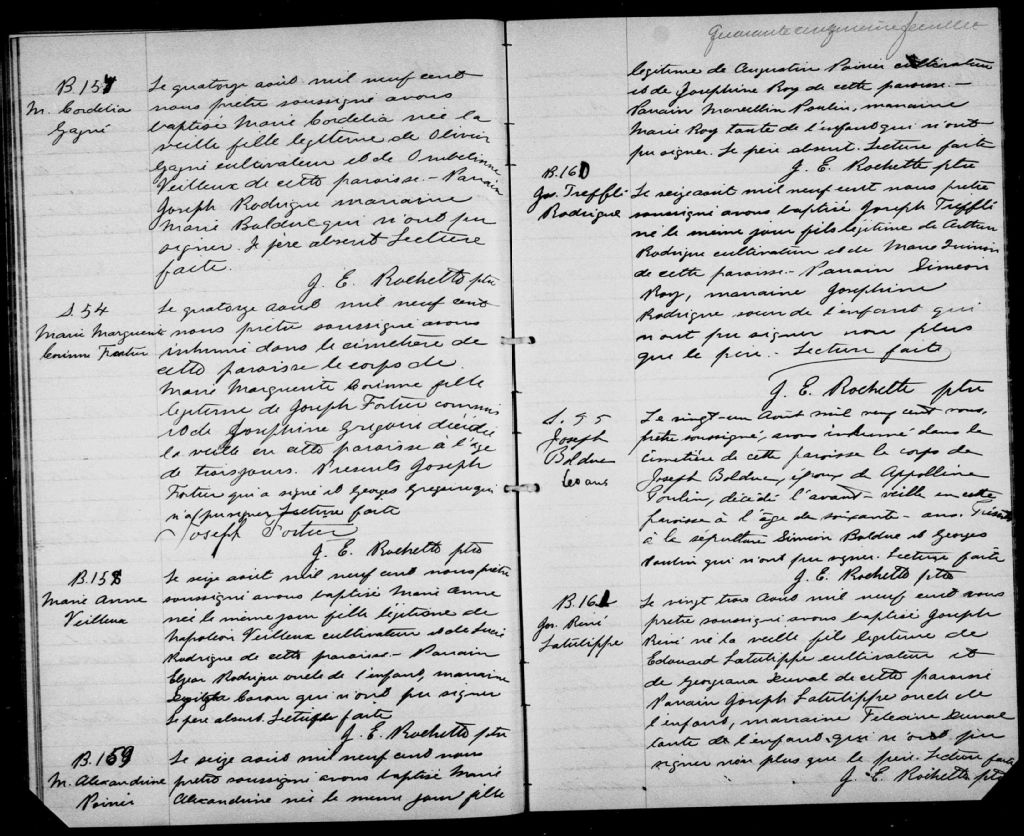 B.157
M. Cordelia
Gagné
Le quatorze août mil neuf cent
nous prêtre soussigné avons
baptisé Marie Cordelia née la
veille fille légitime de Olivier
Gagné cultivateur et de Ombeline
Veilleux de cette paroisse. - Parrain
Joseph Rodrigue marraine
Marie Bolduc qui n'ont pu
signer. Le père absent Lecture
faite.
J. E. Rochette ptre
S. 54
Marie Marguerite
Corinne Fortier
Le quatorze août mil neuf cent
nous prêtre soussigné avons
inhumé dans le cimetière de
cette paroisse le corps de
Marie Marguerite Corinne fille
légitime de Joseph Fortier commis
et de Josephine Grégoire décédée
la veille en cette paroisse à l'âge
de trois jours. Présents Joseph
Fortier qui a signé et Georges Grégoire qui
n'a pu signer Lecture faite
Joseph Fortier
J. E. Rochette ptre
B.158
Marie Anne
Veilleux
Le seize août mil neuf cent nous prêtre
soussigné avons baptisé Marie Anne
née le même jour fille légitime de
Napoléon Veilleux cultivateur et de Lucie
Rodrigue de cette paroisse - Parrain
Elzear Rodrigue oncle de l'enfant, marraine
Caron qui n'ont pu signer
Le père absent. Lecture faite
J. E. Rochette ptre
B.159
M. Alexandrine
Poirier
Le seize août mil neuf cent nous
prêtre soussigné avons baptisé Marie
Alexandrine née le même jour fille
Quarante cinquième feuillet
légitime de Augustin Poirier cultivateur
et de Josephine Roy de cette paroisse. -
Parrain Marcellin Poulin, marraine
Marie Roy tante de l'enfant qui n'ont
pu signer. Le père absent. Lecture faite
J. E. Rochette ptre
B.160
Jos. Trefflé
Rodrigue
Le seize août mil neuf cent nous prêtre
soussigné avons baptisé Joseph Trefflé
né le même jour fils légitime de Arthur
Rodrigue cultivateur et de Marie
de cette paroisse. - Parrain Simeon
Roy, marraine Josephine
Rodrigue soeur de l'enfant qui
n'ont pu signer non plus
que le père. - Lecture faite
J. E. Rochette ptre
S. 55
Joseph
Bolduc
60 ans
Le vingt-un Août mil neuf cent nous,
prêtre soussigné, avons inhumé dans le
cimetière de cette paroisse le corps de
Joseph Bolduc, époux de Appolline
Poulin, décédé l'avant-veille en cette
paroisse à l'âge de soixante-ans. Présents
à la sépulture Simon Bolduc et Georges
Poulin qui n'ont pu signer. Lecture faite
J. E. Rochette ptre
B.161
Jos. René
Latulippe
Le vingt trois Août mil neuf cent nous
prêtre soussigné avons baptisé Joseph
René né la veille fils légitime de
Edouard Latulippe cultivateur et
de Georgiana Duval de cette paroisse
Parrain Joseph Latulippe oncle de
l'enfant, marraine Duval
tante de l'enfant qui n'ont pu
signer non plus que le père. Lecture faite
J. E. Rochette ptre